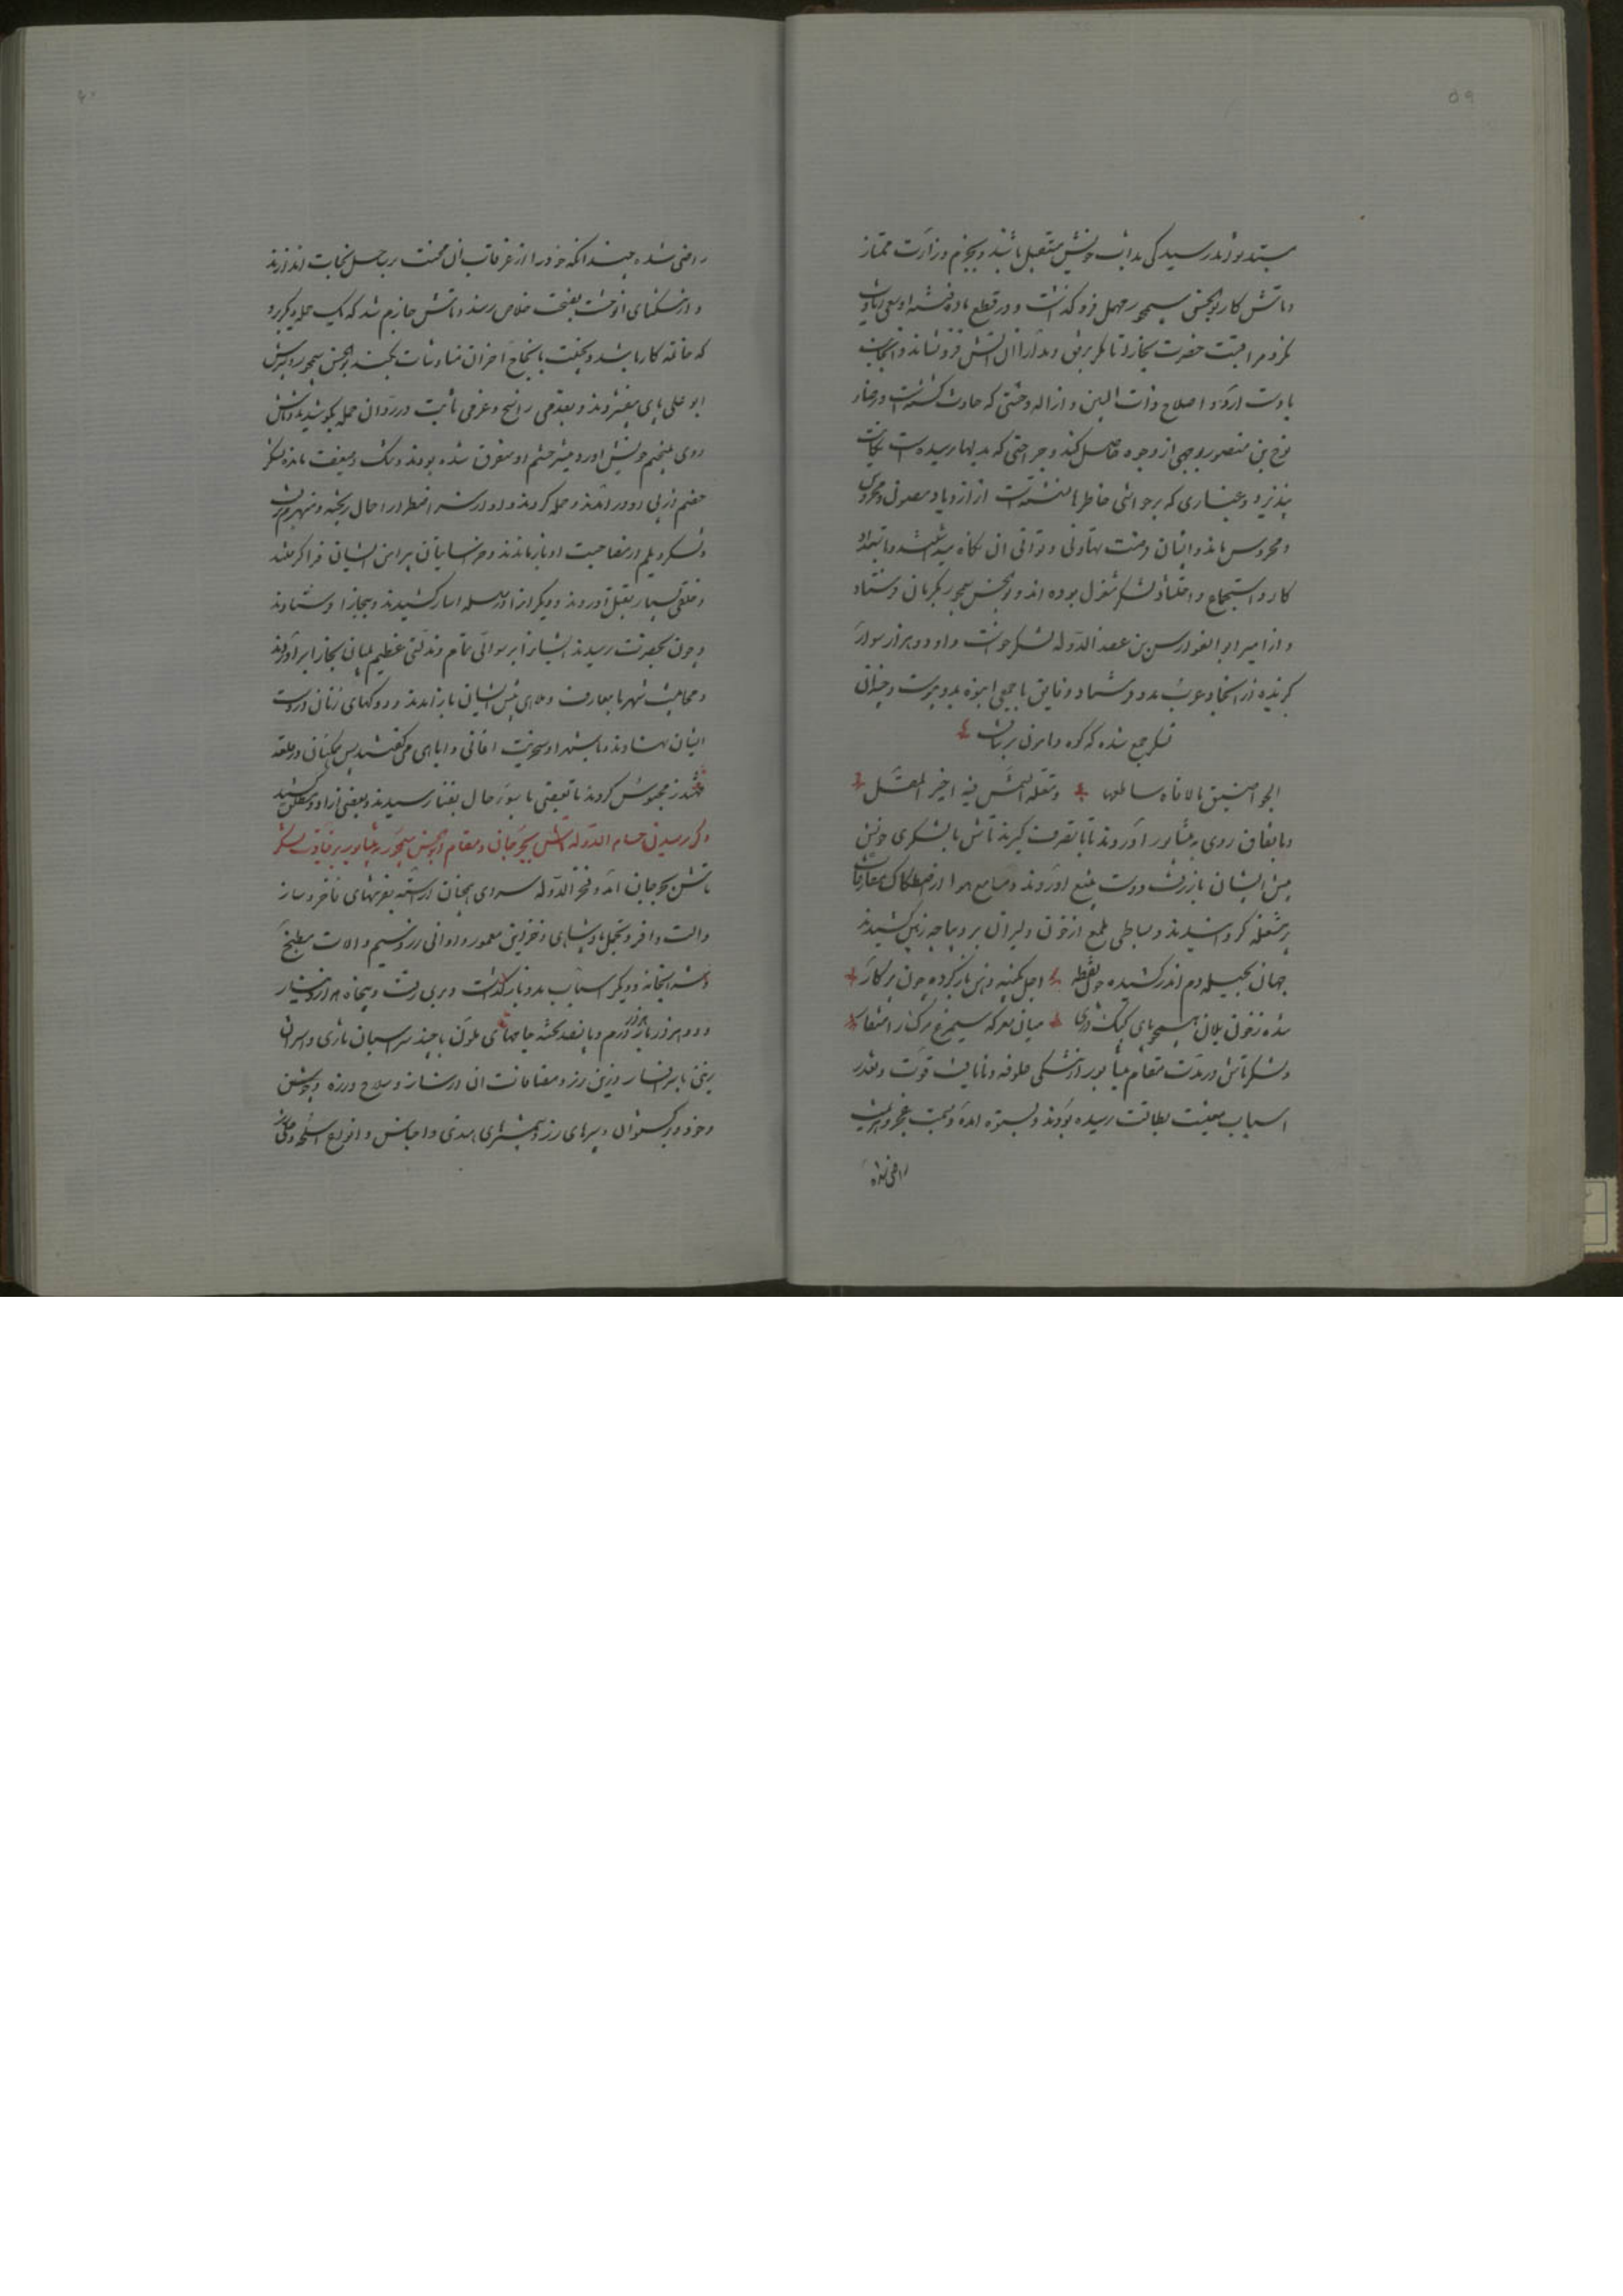 ۵۹
و تاش کار بوالحسن سیمجور مهمل فرو گذاشت و در قطع ماده فتنه او سعی زیادت
نکرد و مراقبت حضرت بخارا تا مکر برفق و مدارا آن آتش فرو نشاند و آنجانب
بادست آرد و اصلاح ذات البین و ازاله وحشتی که حادث گشتست در جناب
نوح بن منصور بوجهی از وجوه حاصل کند و جراحتی که بدلها رسیدست
پذیرد و غباری که بر حواشی خاطرها نشستست از ازدیاد مصون و محروس
و محروس ماند و ایشان فرصت تهاون و توانی آن نگاه میداشتند و باستعداد
کار و استجماع و احتشاد لشکر مشغول بوده اند و بوالحسن سیمجور بکرمان فرستاد
و از امیر ابو الفوارس بن عضد الدوله لشکر خواست و او دو هزار سوار
گزیده از انجاد عرب بمدد فرستاد و فایق با جمعی انبوه بدو پیوست و چندان
لشکر جمع شده که کوه و هامون بر نتافت
الجو اضیق ما لاقاه ساطعها و مقلة الشمس فیه احیر المقل
و باتفاق روی به نشابور آوردند تا با تصرف گیرند تاش با لشکری خویش
پیش ایشان باز رفت و دست بتیغ آوردند و مسامع هوا از اصطکاک مقارعات
پر مشغله کردانیدند و بساطی ملمع از خون دلیران بر دیباجه زمین کشیدند
جهان بحیله دم اندر کشیده چون نقطه اجل بکینه دهن باز کرده چون پرگار
شده ز خون یلان همچو پای کبک دری میان معرکه سیمرغ مرک را منقار
و لشکر تاش در مدت مقام نشابور از تنگی علوفه و نایافت قوت و تعذر
اسباب معیشت بطاقت رسیده بودند و بستوه آمده و بسمت عجز و هزیمت
راضی شده
۶۰
راضی شده چندانکه خود را از غرقاب آن محنت بر ساحل نجات اندازند
و از تنگنای آن وحشت بفسحت خلاص رسند و تاش جازم شد که یک حمله دیگر برد
که خاتمه کار باشد و بوالحسن سیمجور و پسرش
ابو علی پای بیفشردند و بقدمی راسخ و عزمی ثابت در رد آن حمله بکوشیدند و تاش
روی بمخیم خویش آورد و بیشتر حشم او متفرق شده بودند و تنک و ضعیف مانده لشکر
خصم از پی او در آمدند و حمله کردند و او از سر اضطرار احال ریخته و منهزم رفت
و لشکر دیلم در مصاحبت او باز ماندند و خراسانیان پیرامن ایشان فرا گرفتند
و خلقی بسیار بقتل آوردند و دیگر را در سلسله اسار کشیدند و ببخارا فرستادند
و چون بحضرت رسیدند ایشانرا برسوائی تمام و مذلتی عظیم بمیان بخارا برآوردند
و مخانیث شهر با معازف و ملاهی پیش ایشان باز آمدند و دوکهای زنان در دست
ایشان نهادند و باستهزا و سخریت اغانی و اهاجی می گفتند پس همگنان در قلعه
قهندز محبوس کردند تا بعضی با سوء حال بفنا رسیدند و بعضی آزاد و مطلق شدند
ذکر رسیدن حسام الدوله تاش بجرجان و مقام بوالحسن سیمجور بنیشابور بر قیادت لشکر
تاش بجرجان آمد و فخر الدوله سرای همچنان آراسته بفرشهای فاخر و ساز
و آلت وافر و تجمل پادشاهی و خزاین معمور و اوانی زر و سیم و آلات مطبخ
و شرابخانه و دیگر اسباب بدو باز گذاشت و بری رفت و پنجاه هزار دینار
و دو هزار بار هزار درم و پانصد تخته جامهای ملون با چند سر اسبان تازی و استران
زینی با سرافسار و زین زر و مضافات آن از ساز و سلاح و زره و جوشن
و خود و برگستوان و سپرهای زر و شمشیرهای هندی و اجناس و انواع اسلحه و